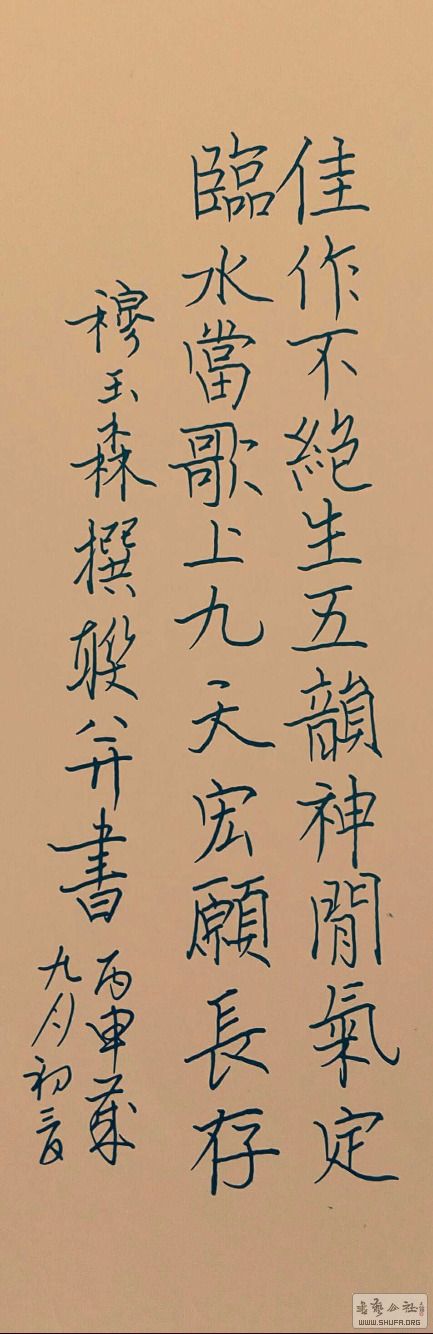 佳作不絕生五韻神閒氣定
臨水當歌上九天宏願長存
穆玉森撰聯并書
丙申歲
九月初三夜
書藝公社
WWW.SHUFA.ORG